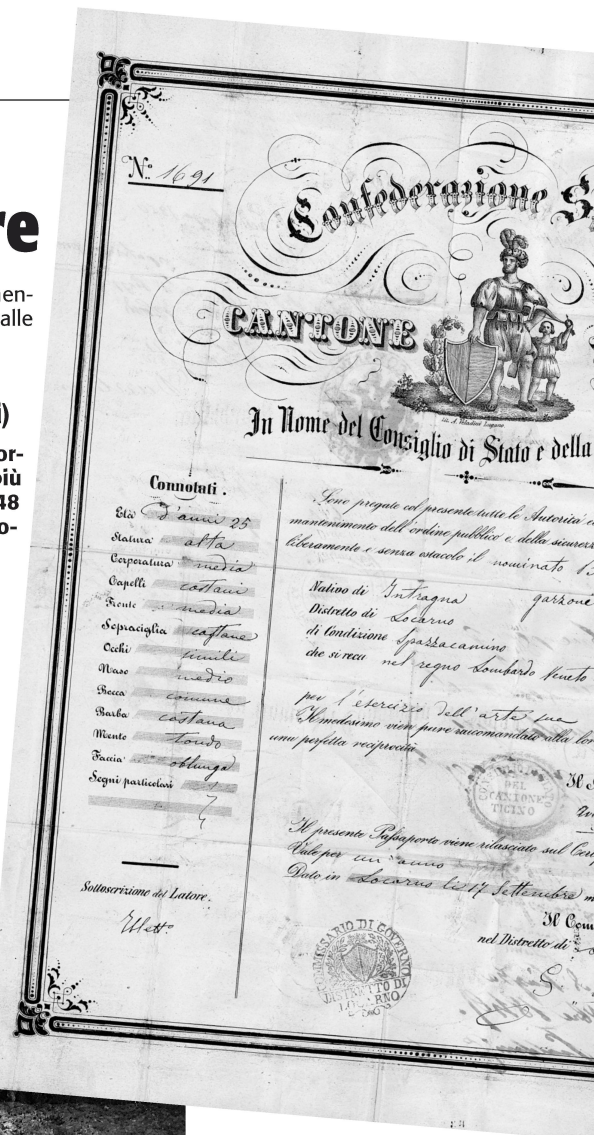 re
men-
alle
i)
or-
più
48
o-
N.º 1691
Confederazione S
CANTONE
lit. A. Veladini Lugano
In Nome del Consiglio di Stato e della
Connotati.
Età d'anni 25
Statura alta
Corporatura media
Capelli castani
Fronte media
Sopraciglia castane
Occhi simili
Naso medio
Bocca comune
Barba castana
Mento tondo
Faccia oblunga
Segni particolari
Sottoscrizione del Latore.
Sono pregate col presente tutte le Autorità
mantenimento dell'ordine pubblico e della sicurezz
liberamente e senza ostacolo il nominato
Nativo di Intragna garzone
Distretto di Locarno
di Condizione Spazzacamino
che si reca nel regno Lombardo Veneto
per l'esercizio dell'arte sua
Il medesimo vien pure raccomandato alla
una perfetta reciprocità
DEL
CANTONE
TICINO
Il presente Passaporto viene rilasciato sul
Vale per un'anno
Dato in Locarno li 17 Settembre m
Il Com
nel Distretto di
COMMISSARIO DI GOVERNO
DISTRETTO DI
LOCARNO